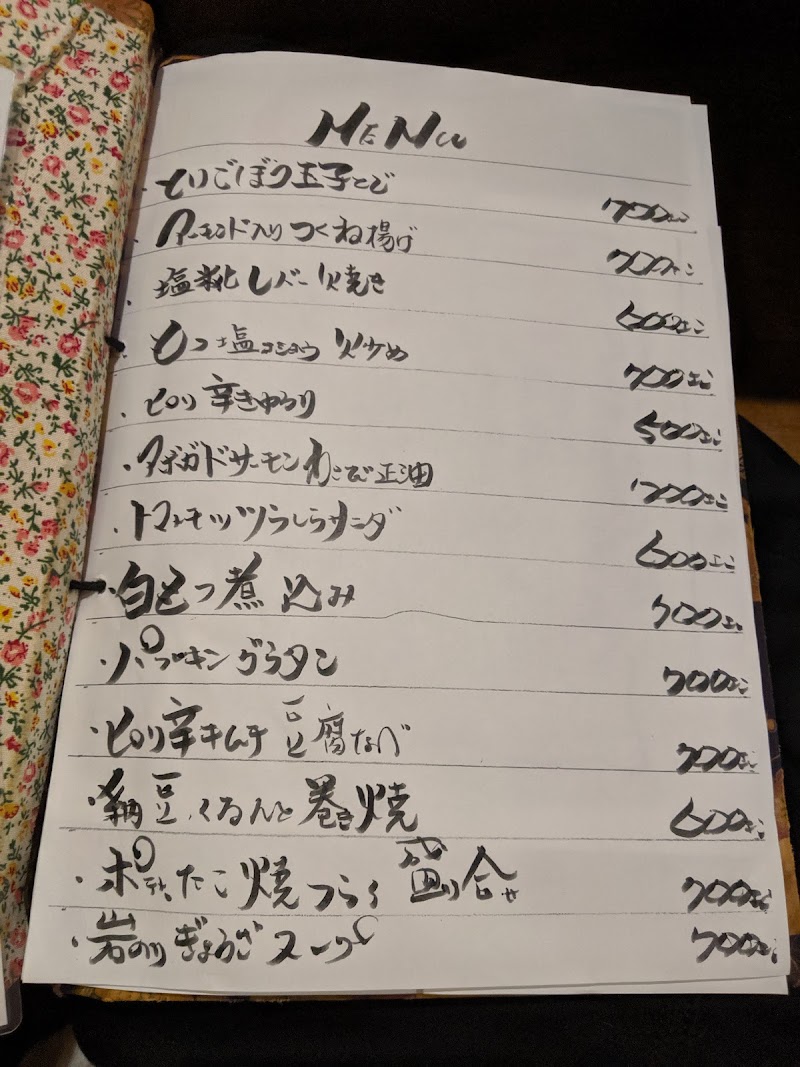 MENU
・とりごぼう玉子とじ 700円
・アーモンド入りつくね揚げ 700円
・塩麹レバー焼き 600円
・もつ塩コショウ炒め 700円
・ピリ辛きゅうり 500円
・アボガドサーモンわさび正油 700円
・トマトモッツァ サラダ 600円
・白もつ煮込み 700円
・パンプキングラタン 700円
・ピリ辛キムチ豆腐なべ 700円
・納豆くるんと巻き焼 600円
・ポテト、たこ焼 盛り合せ 700円
・岩のりぎょうざスープ 700円